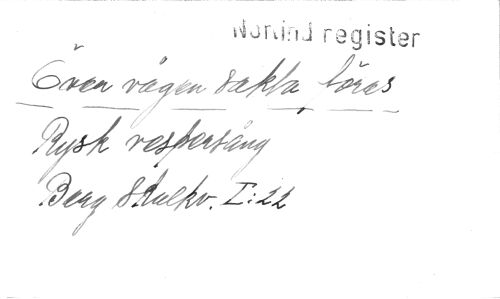 Norlind register
Över vågen sakta föres
Rysk vespersång
Berg Skolkv. I:22